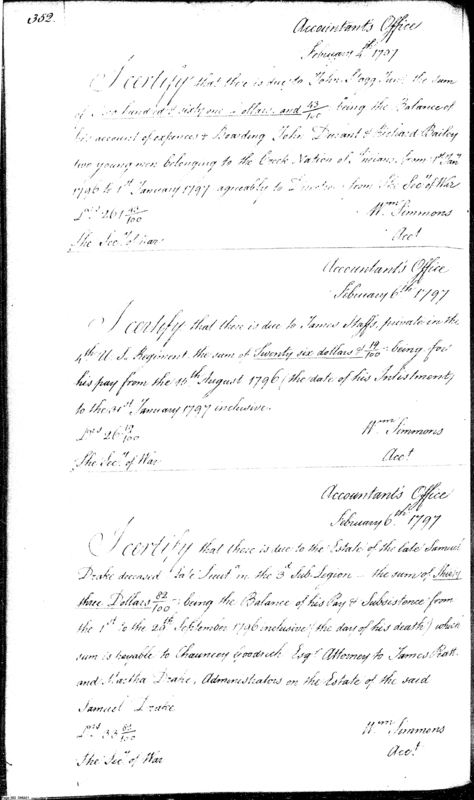 352.
Accountant's Office
February 4th 1797
I certify that there is due to John Stagg Junr. the sum
of Two hundred & sixty one Dollars and 43/100 being the Balance of
his account of expences & Boarding John Durant & Richard Bailey
two young men belonging to the Creek Nation of Indians from 1st Jany
1796 to 1st January 1797 agreeably to Direction from the Secy of War
Drs 261 43/100
Wm Simmons
The Secy of War
Acct
Accountant's Office
February 6th 1797
I certify that there is due to James Staffs, private in the
4th U S. Regiment the sum of Twenty six dollars & 19/100 being for
his pay from the 15th August 1796 (the date of his Inlistment)
to the 31st January 1797 inclusive.
Drs 26 19/100
Wm Simmons
The Secy of War
Acct
Accountant's Office
February 6th 1797
I certify that there is due to the Estate of the late Samuel
Drake deceased late Lieut in the 3d Sub Legion the sum of Thirty
three Dollars 82/100 being the Balance of his Pay & Subsistence from
the 1st to the September 1796 inclusive (the day of his death) which
sum is payable to Chauncey Goodrich Esqr Attorney to James
and Martha Drake, Administrators on the Estate of the said
Samuel Drake
Drs 33 82/100
Wm Simmons
The Secy of War
Acct